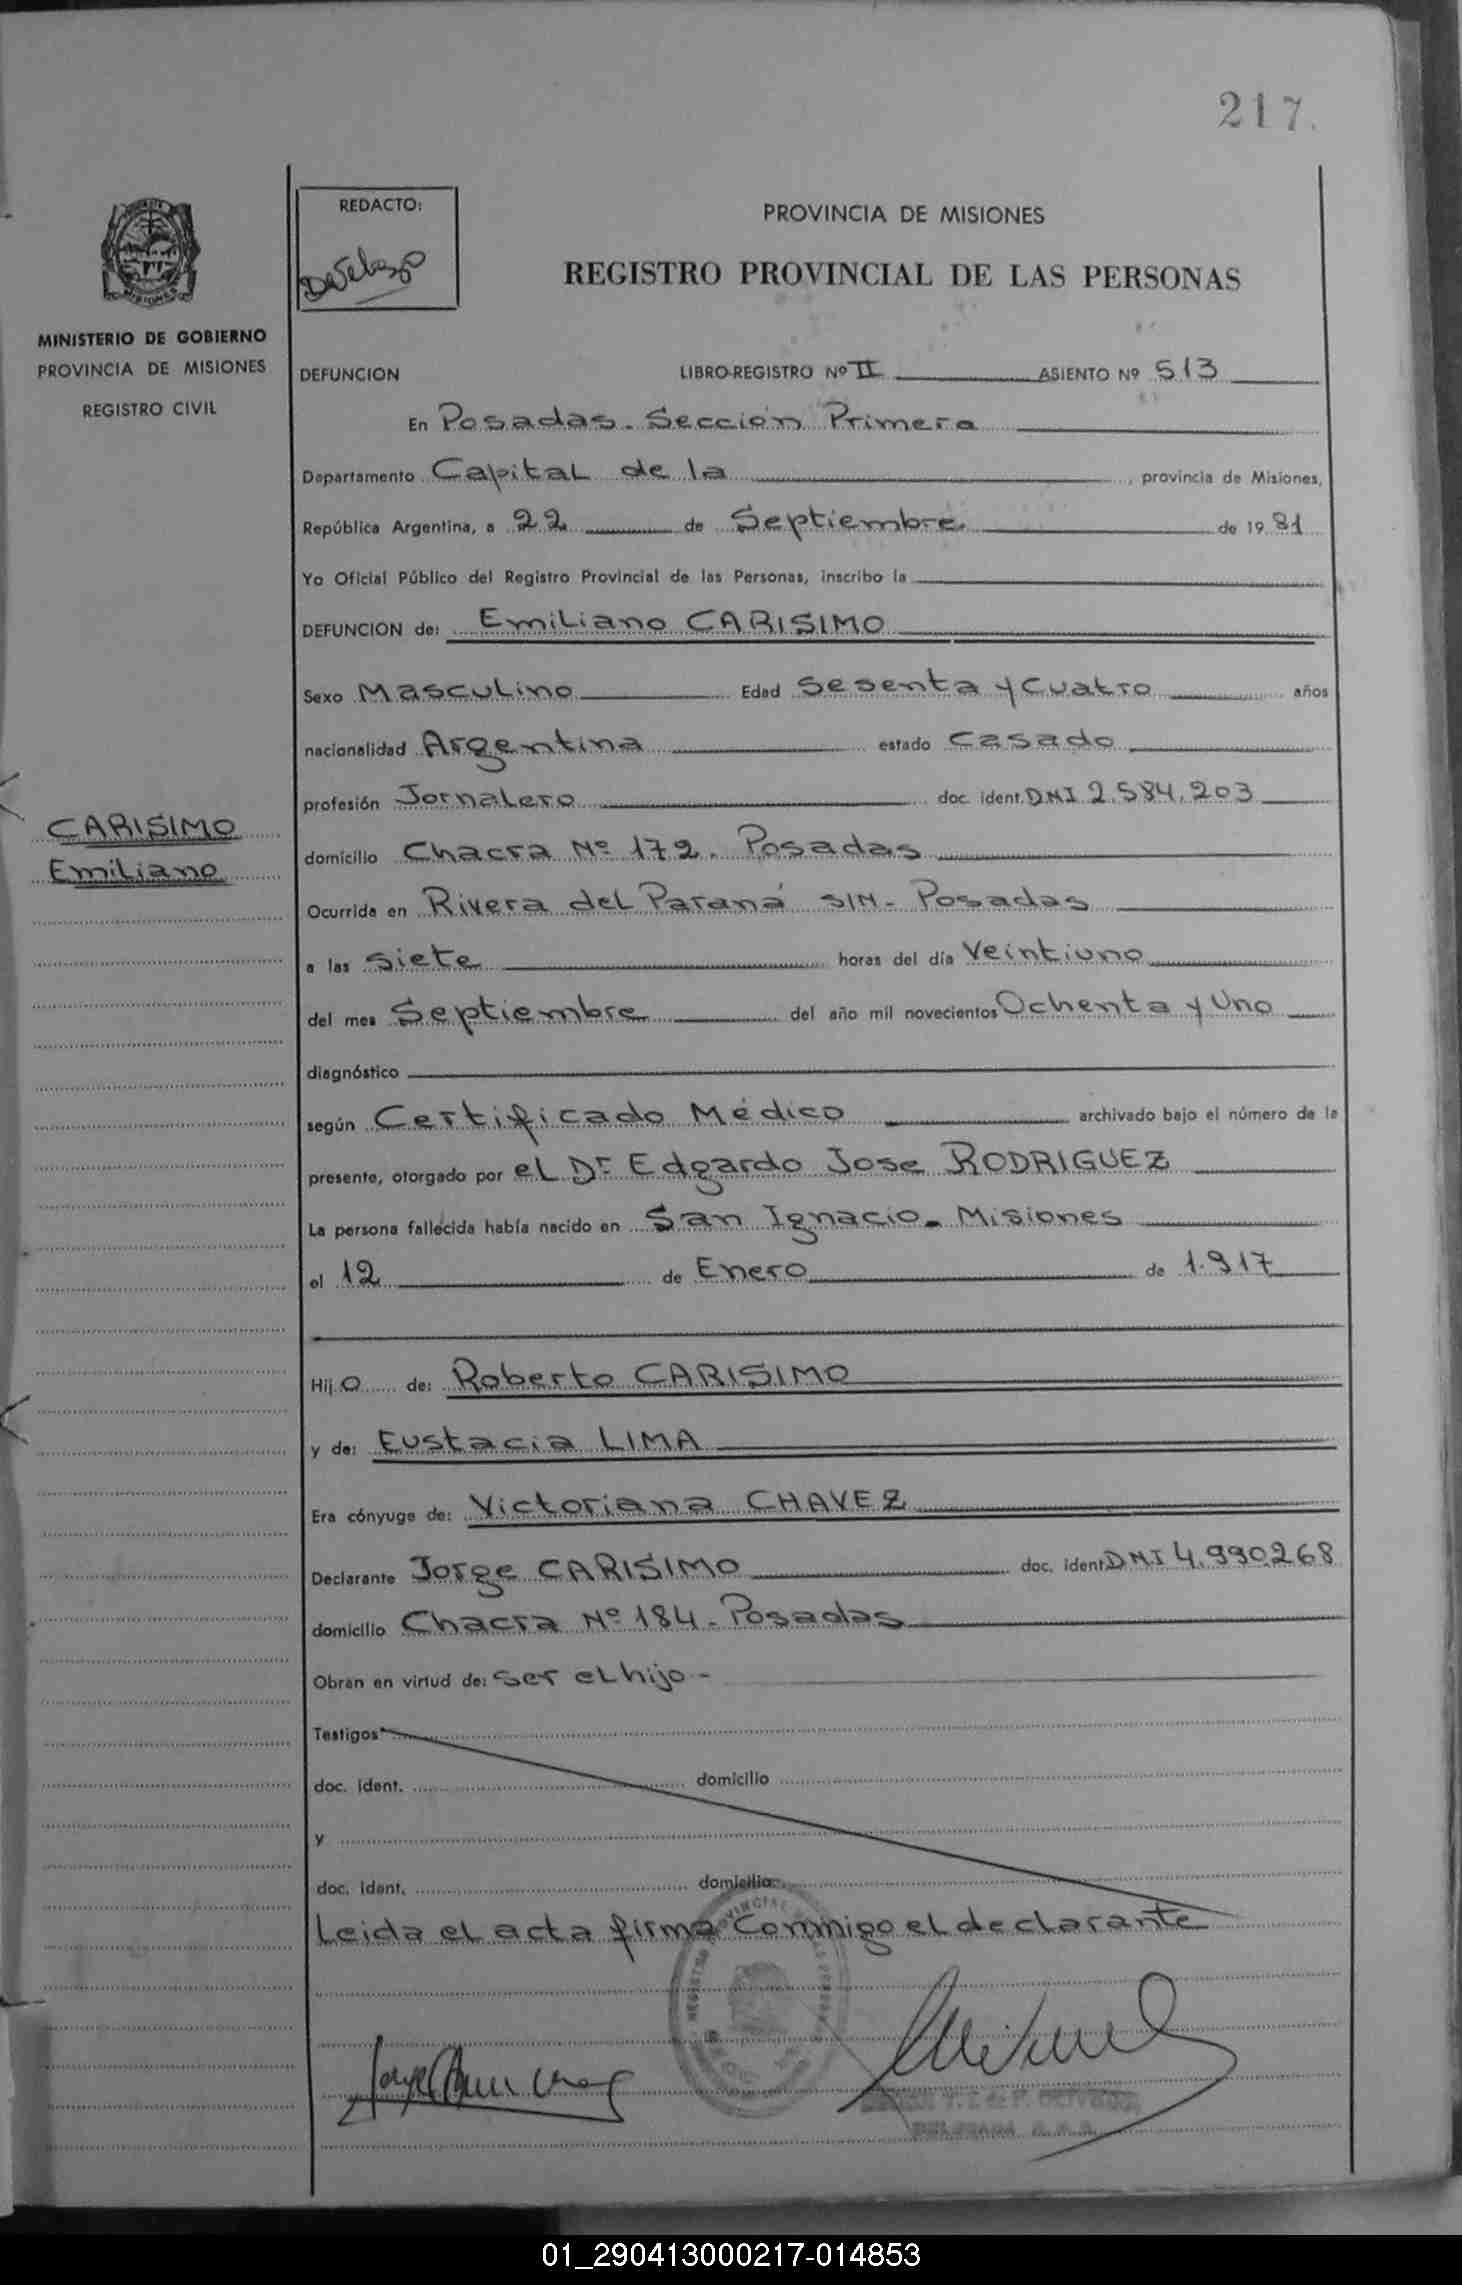 217.
REDACTO:
PROVINCIA DE MISIONES
REGISTRO PROVINCIAL DE LAS PERSONAS
MISIONES
MINISTERIO DE GOBIERNO
PROVINCIA DE MISIONES
REGISTRO CIVIL
DEFUNCION LIBRO-REGISTRO Nº II ASIENTO Nº 513
En Posadas. Sección Primera
Departamento Capital de la, provincia de Misiones,
República Argentina, a 22 de Septiembre. de 1981
Yo Oficial Público del Registro Provincial de las Personas, inscribo la
DEFUNCION de: Emiliano CARISIMO
Sexo Masculino Edad Sesenta y Cuatro años
nacionalidad Argentina estado Casado
profesión Jornalero doc. ident. DNI 2.584.203
CARISIMO
Emiliano
domicilio Chacra Nº 172. Posadas
Ocurrida en Rivera del Paraná S/N- Posadas
a las Siete horas del día Veintiuno
del mes Septiembre del año mil novecientos Ochenta y Uno
diagnóstico
según Certificado Médico archivado bajo el número de la
presente, otorgado por el Dr Edgardo Jose RODRIGUEZ
La persona fallecida había nacido en San Ignacio. Misiones
el 12 de Enero de 1.917
Hijo de: Roberto CARISIMO
y de: Eustacia LIMA
Era cónyuge de: Victoriana CHAVEZ
Declarante Jorge CARISIMO doc. ident DNI 4.990.268
domicilio Chacra Nº 184- Posadas
Obran en virtud de: Ser el hijo -
Testigos
doc. ident. domicilio
y
doc. ident. domicilio
Leida el acta firma Conmigo el declarante
01_290413000217-014853